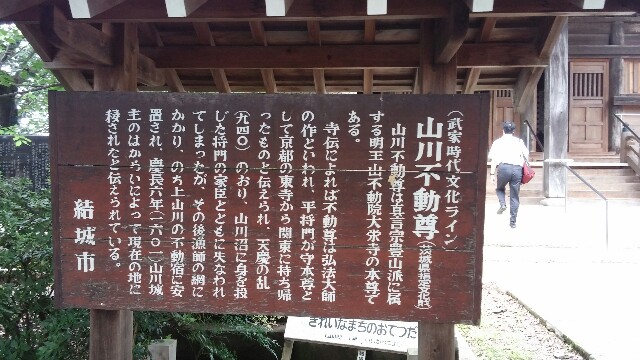 (武家時代文化ライン)
山川不動尊(茨城県指定文化財)
山川不動尊は真言宗豊山派に属
する明王山不動院大栄寺の本尊で
ある。
寺伝によれば不動尊は弘法大師
の作といわれ、平将門が守本尊と
して京都の東寺から関東に持ち帰
ったものと伝えられ、天慶の乱
(九四〇)のおり、山川沼に身を投
じた将門の家臣とともに失なわれ
てしまったが、その後漁師の網に
かかり、のち上山川の不動宿に安
置され、慶長六年(一六〇一)山川城
主のはからいによって現在の地に
移されたと伝えられている。
結城市
きれいなまちのおてつだ